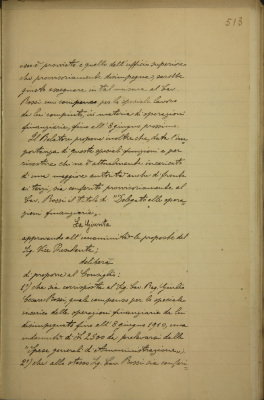 513
cui è provvisto e quello dell'ufficio superiore
che provvisoriamente disimpegna, sarebbe
giusto assegnare in tal misura al Cav.
Rossi un compenso per lo speciale lavoro
da lui compiuto, in materia di operazioni
finanziarie, fino all'8 giugno prossimo.
Il Relatore propone inoltre che, data l'im-
portanza di queste speciali funzioni e per
rivestire chi ne è attualmente incaricato
di una maggiore autorità anche di fronte
ai terzi, sia conferito provvisoriamente al
Cav. Rossi il titolo di "Delegato alle opera-
zioni finanziarie".
La Giunta
approvando all'unanimità le proposte del
Sig. Vice Presidente;
delibera
di proporre al Consiglio:
1°) che sia corrisposta al Sig. Cav. Rag. Giulio
Cesare Rossi, quale compenso per lo speciale
incarico delle operazioni finanziarie da lui
disimpegnato fino all'8 giugno 1910, una
indennità di L. 2500 da prelevarsi dalle
"Spese generali d'Amministrazione";
2°) che allo stesso Sig. Cav. Rossi sia conferi-